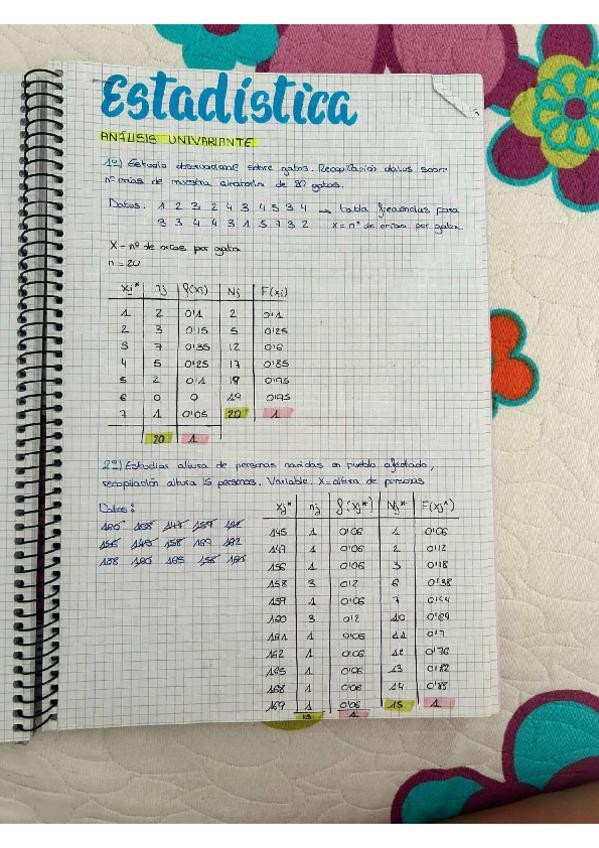 Estadística
ANÁLISIS UNIVARIANTE
1º) Estudio observacional sobre gatos. Recopilación datos sobre
nº crías de muestra aleatoria de 20 gatos.
Datos. 1 2 3 2 4 3 4 5 3 4 → tabla frecuencias para
3 3 4 4 3 1 5 7 3 2 x = nº de crías por gato.
X - nº de crías por gato
n = 20
xi* nj f(xi) Nj F(xi)
1 2 0'1 2 0'1
2 3 0'15 5 0'25
3 7 0'35 12 0'6
4 5 0'25 17 0'85
5 2 0'1 19 0'95
6 0 0 19 0'95
7 1 0'05 20 1
20 1
2º) Estudiar altura de personas nacidas en pueblo afectado,
recopilación altura 15 personas. Variable. X = altura de personas
Datos:
xj* nj f(xj*) Nj* F(xj*)
145 1 0'06 1 0'06
147 1 0'06 2 0'12
156 1 0'06 3 0'18
158 3 0'2 6 0'38
159 1 0'06 7
160 3 0'2 10
161 1 0'06 11 0'7
162 1 0'06 12 0'76
165 1 0'06 13 0'82
168 1 0'06 14 0'88
169 1 0'06 15 1
15 1